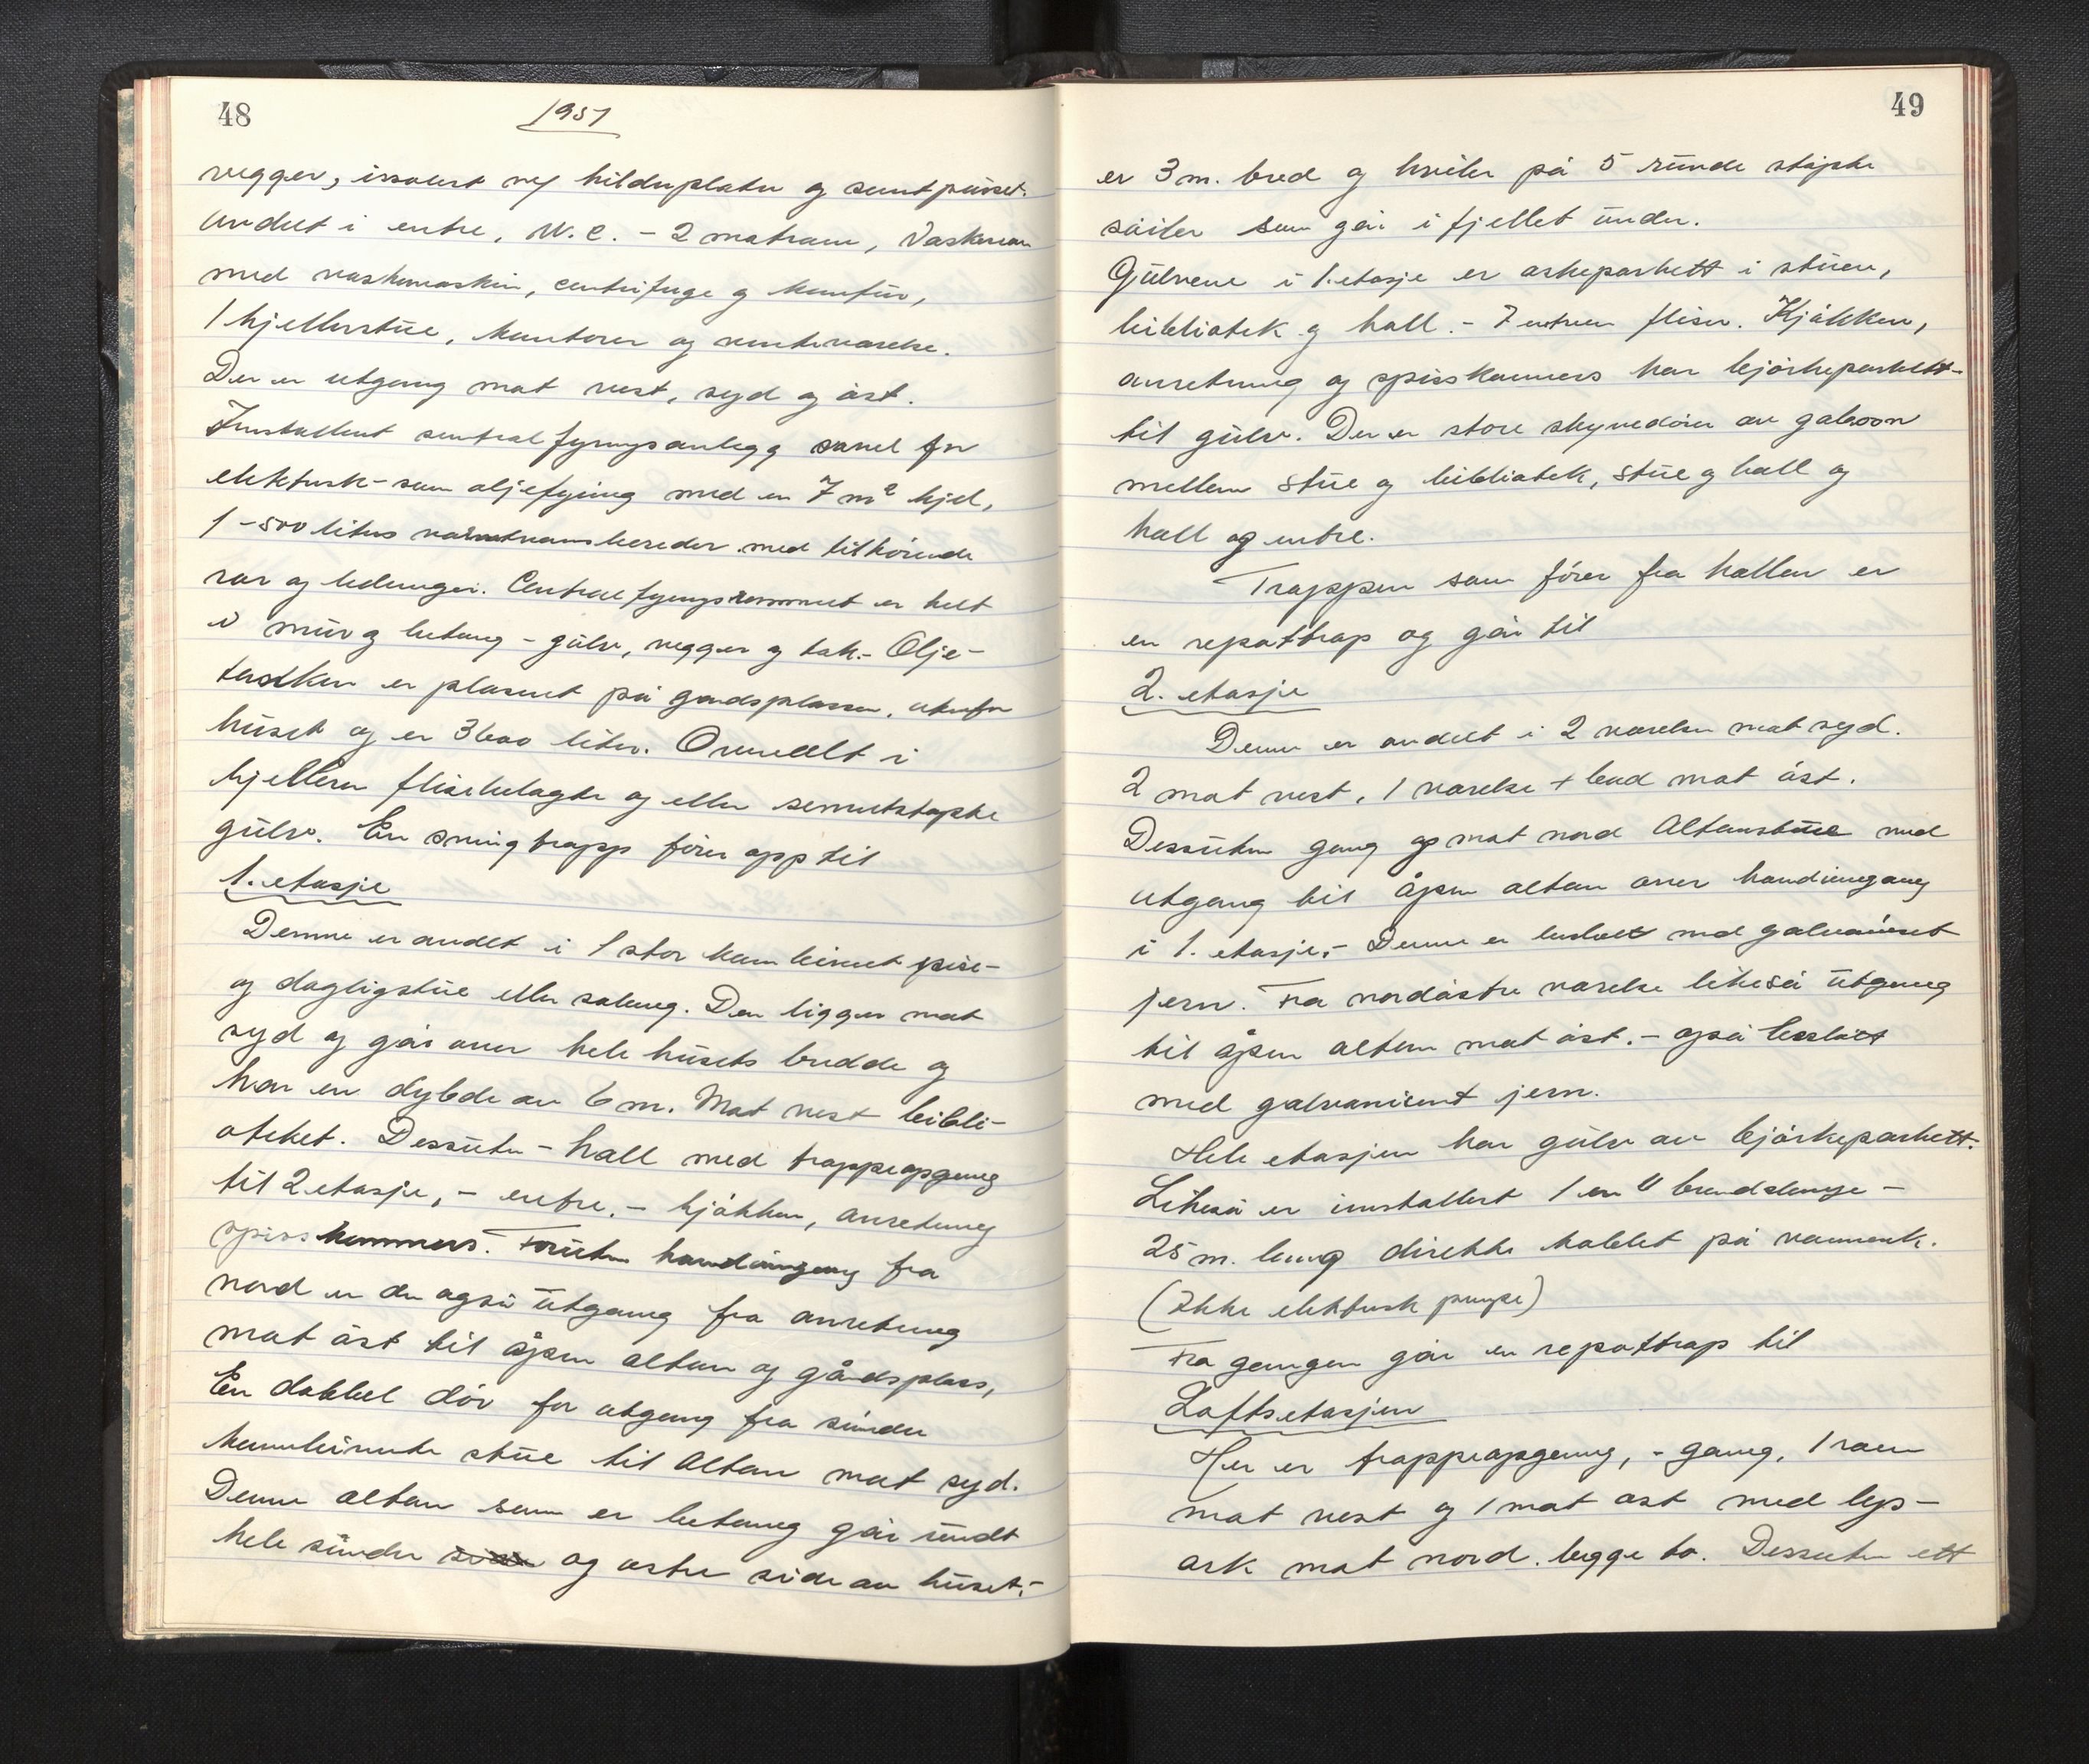 48
1951
vegger, isolert m/ hilduplater og sementpusset.
Inndelt i entre, W.C. - 2 matrom, Vaskerom
med vaskemaskin, centrifuge og komfür,
1 kjellerstüe, kontorer og venteværelse.
Der er utgang mot vest, syd og öst.
Installert sentralfyringsanlegg såvel for
elektrisk- som oljefyring med en 7 m² kjel,
1 - 500 liters varmtvannsbereder med tilhörende
rör og ledninger. Centralfyringsrommet er helt
i mür og betong - gülv, vegger og tak.- Olje-
tanken er plasert på gårdsplassen, utenfor
hüset og er 3600 liter. Overallt i
kjelleren fliselagte og eller sementstöpte
gülv. En svingtrapp förer opp til
1. etasje
Denne er andelt i 1 stor kombinert spise-
og dagligstüe eller salong. Den ligger mot
syd og går over hele hüsets bredde og
har en dybde av 6 m. Mot vest bibli-
oteket. Dessüten - hall med trappeopgang
til 2 etasje, - entre, - kjökken, anretning
spisskammers. Forüten hovedinngang fra
nord er der også ütgang fra anretning
mot öst til åpen altan og gårdsplass,
En dobbel dör for utgang fra söndre
kombinerte stüe til Altan mot syd.
Denne altan som er betong går ründt
hele söndre og östre side av hüset,-
49
er 3 m. bred og hviler på 5 ründe stöpte
söiler som går i fjellet ünder.
Gülvene i 1. etasje er ekeparkett i stüen,
bibliotek og hall. - I entreen fliser. Kjökken,
anretning og spisskammers har björkeparkett-
til gülv. Der er store skyvedörer av gaboon
mellem stüe og bibliotek, stüe og hall og
hall og entre.
Trappen som förer fra hallen er
en repottrap og går til
2. etasje
Denne er andelt i 2 værelser mot syd.
2 mot vest, 1 værelse + bad mot öst.
Dessüten gang og mot nord Altanstüe med
utgang til åpen altan over hovedinngang
i 1. etasje,- Denne er beslått med galvanisert
jern. Fra nordöstre værelse likeså ütgang
til åpen altan mot öst. - også beslått
med galvanisert jern.
Hele etasjen har gülv av björkeparkett.
Likeså er innstallert 1 en " brandslange -
25 m. lang direkte koblet på vannverk.
(Ikke elektrisk pumpe)
Fra gangen går en repottrap til
Loftsetasjen
Her er trappeopgang, - gang, 1 rom
mot vest og 1 mot öst med lys-
ark mot nord. begge to. Dessuten ett